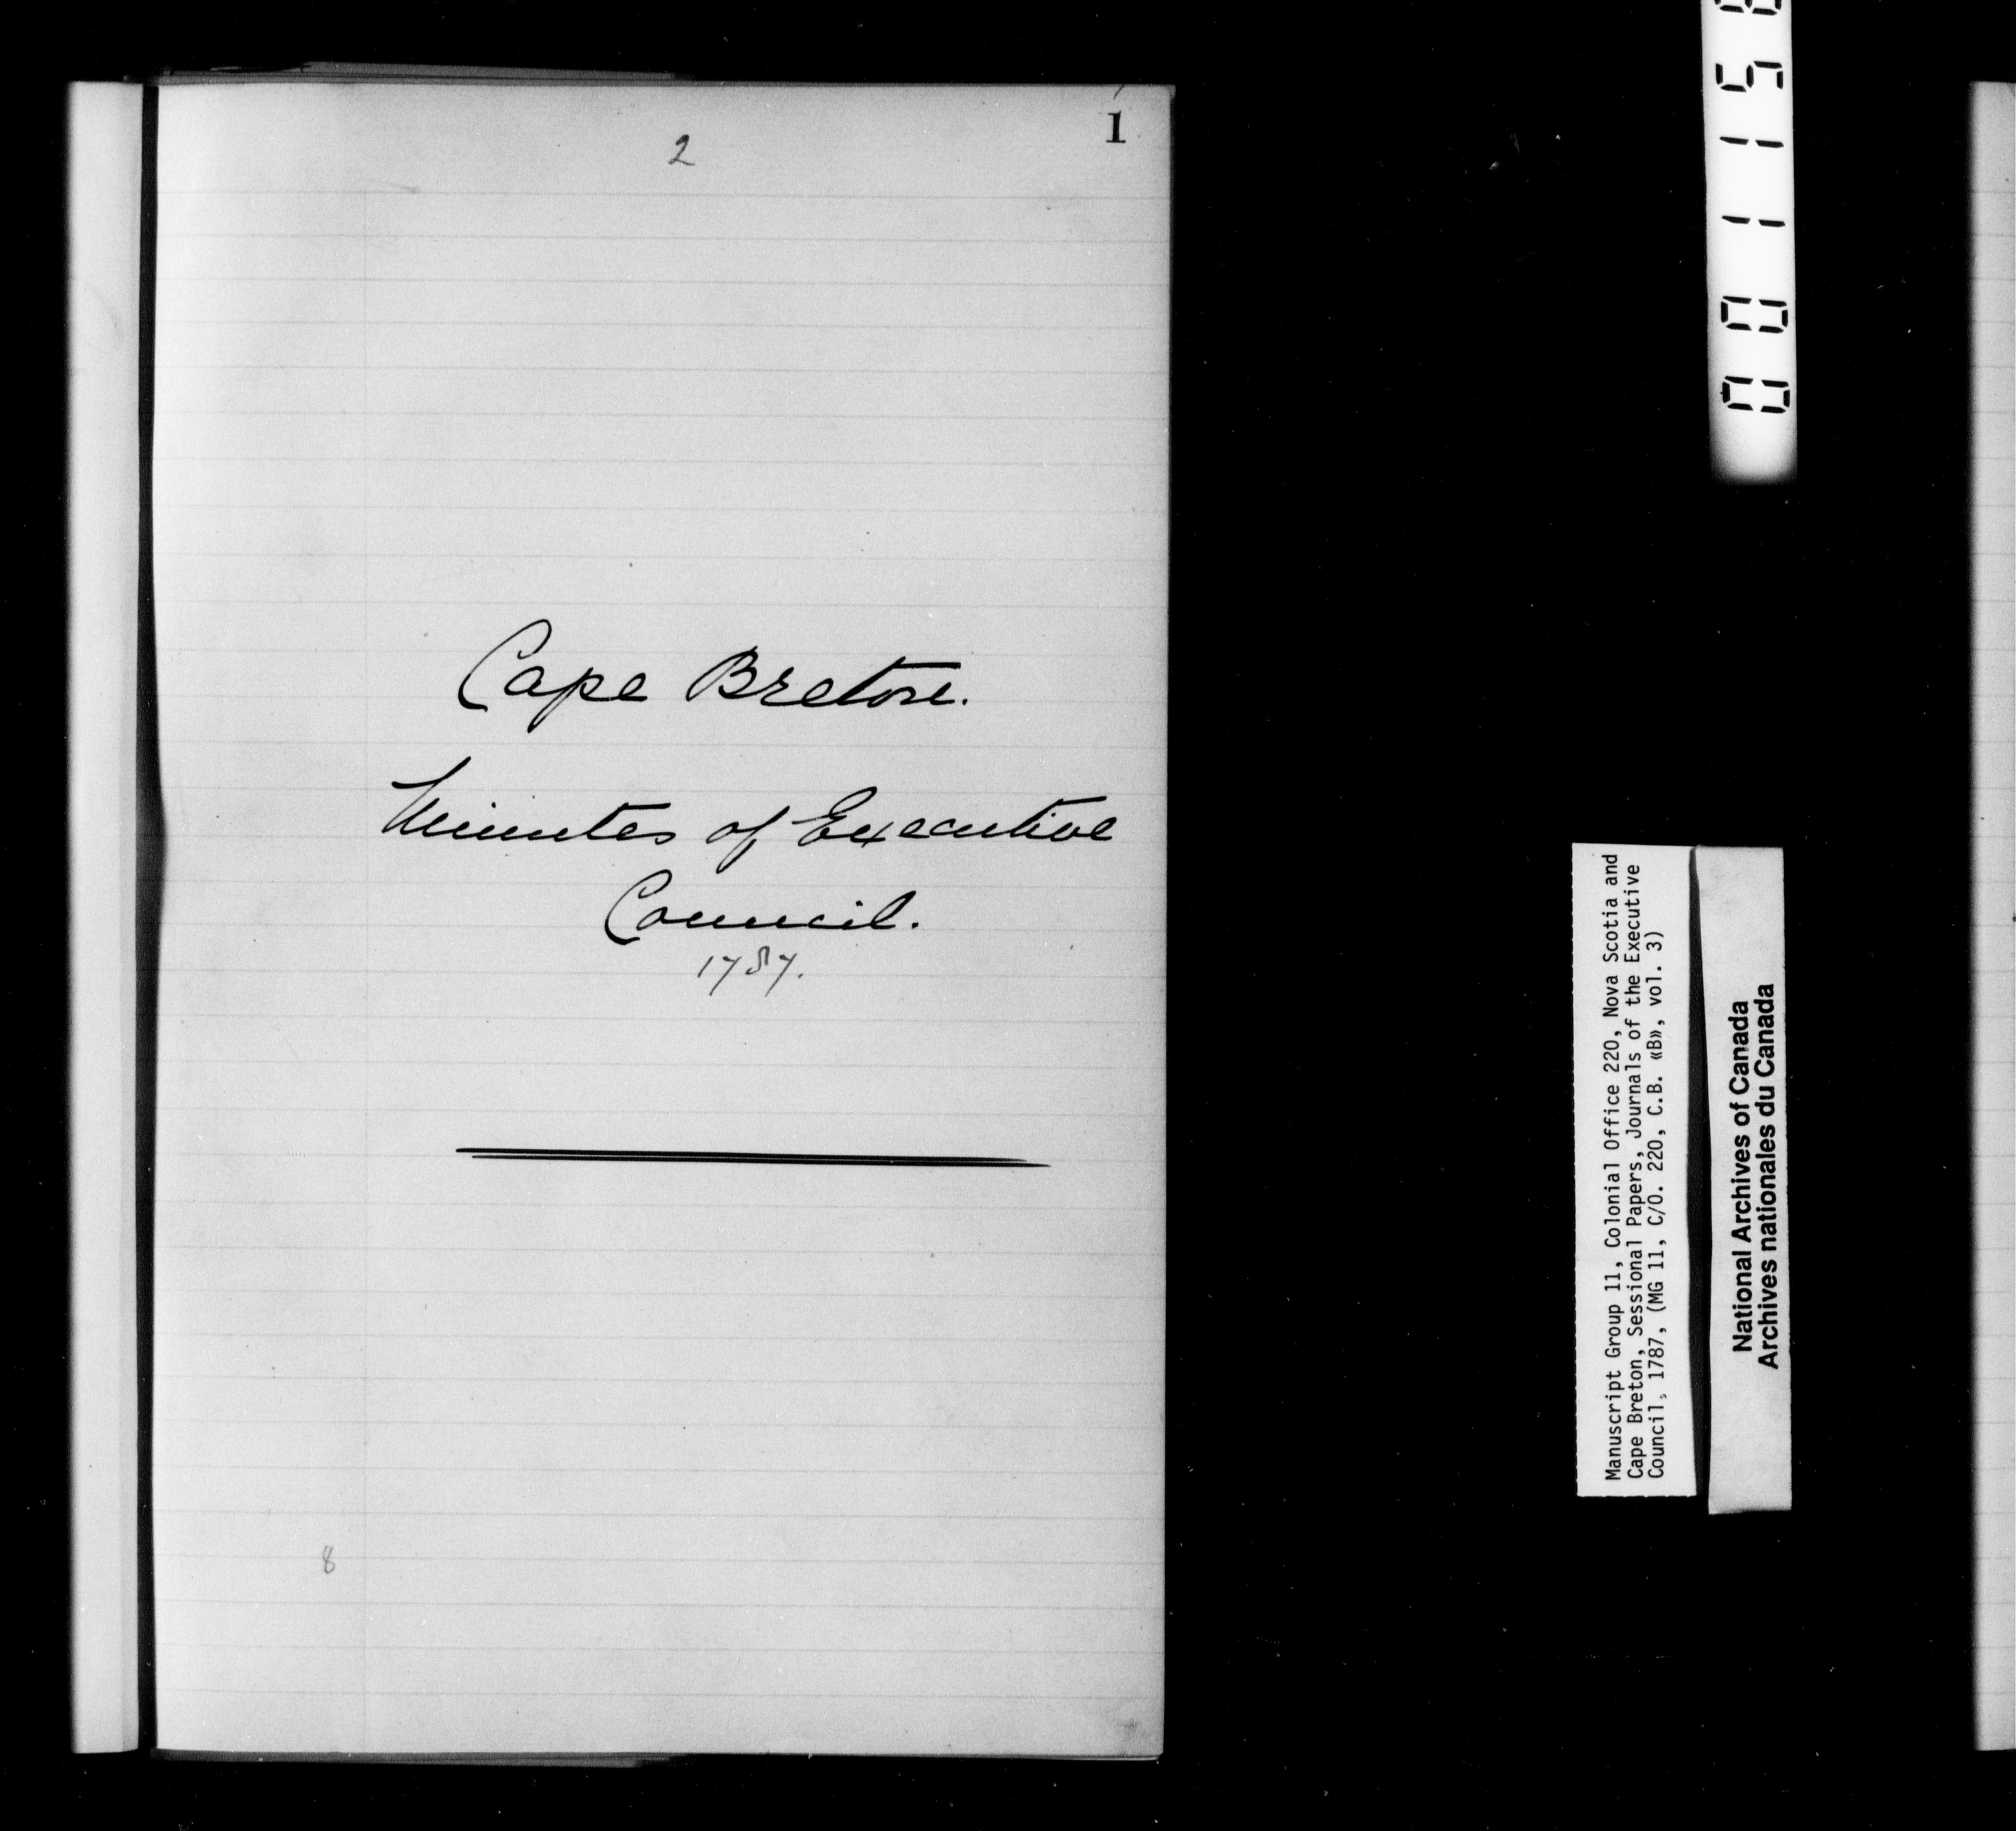 1
2
Cape Breton.
Minutes of Executive
Council.
1787.
8
Manuscript Group 11, Colonial Office 220, Nova Scotia and
Cape Breton, Sessional Papers, Journals of the Executive
Council, 1787, (MG 11, C/O. 220, C.B. «B», vol. 3)
National Archives of Canada
Archives nationales du Canada
00115